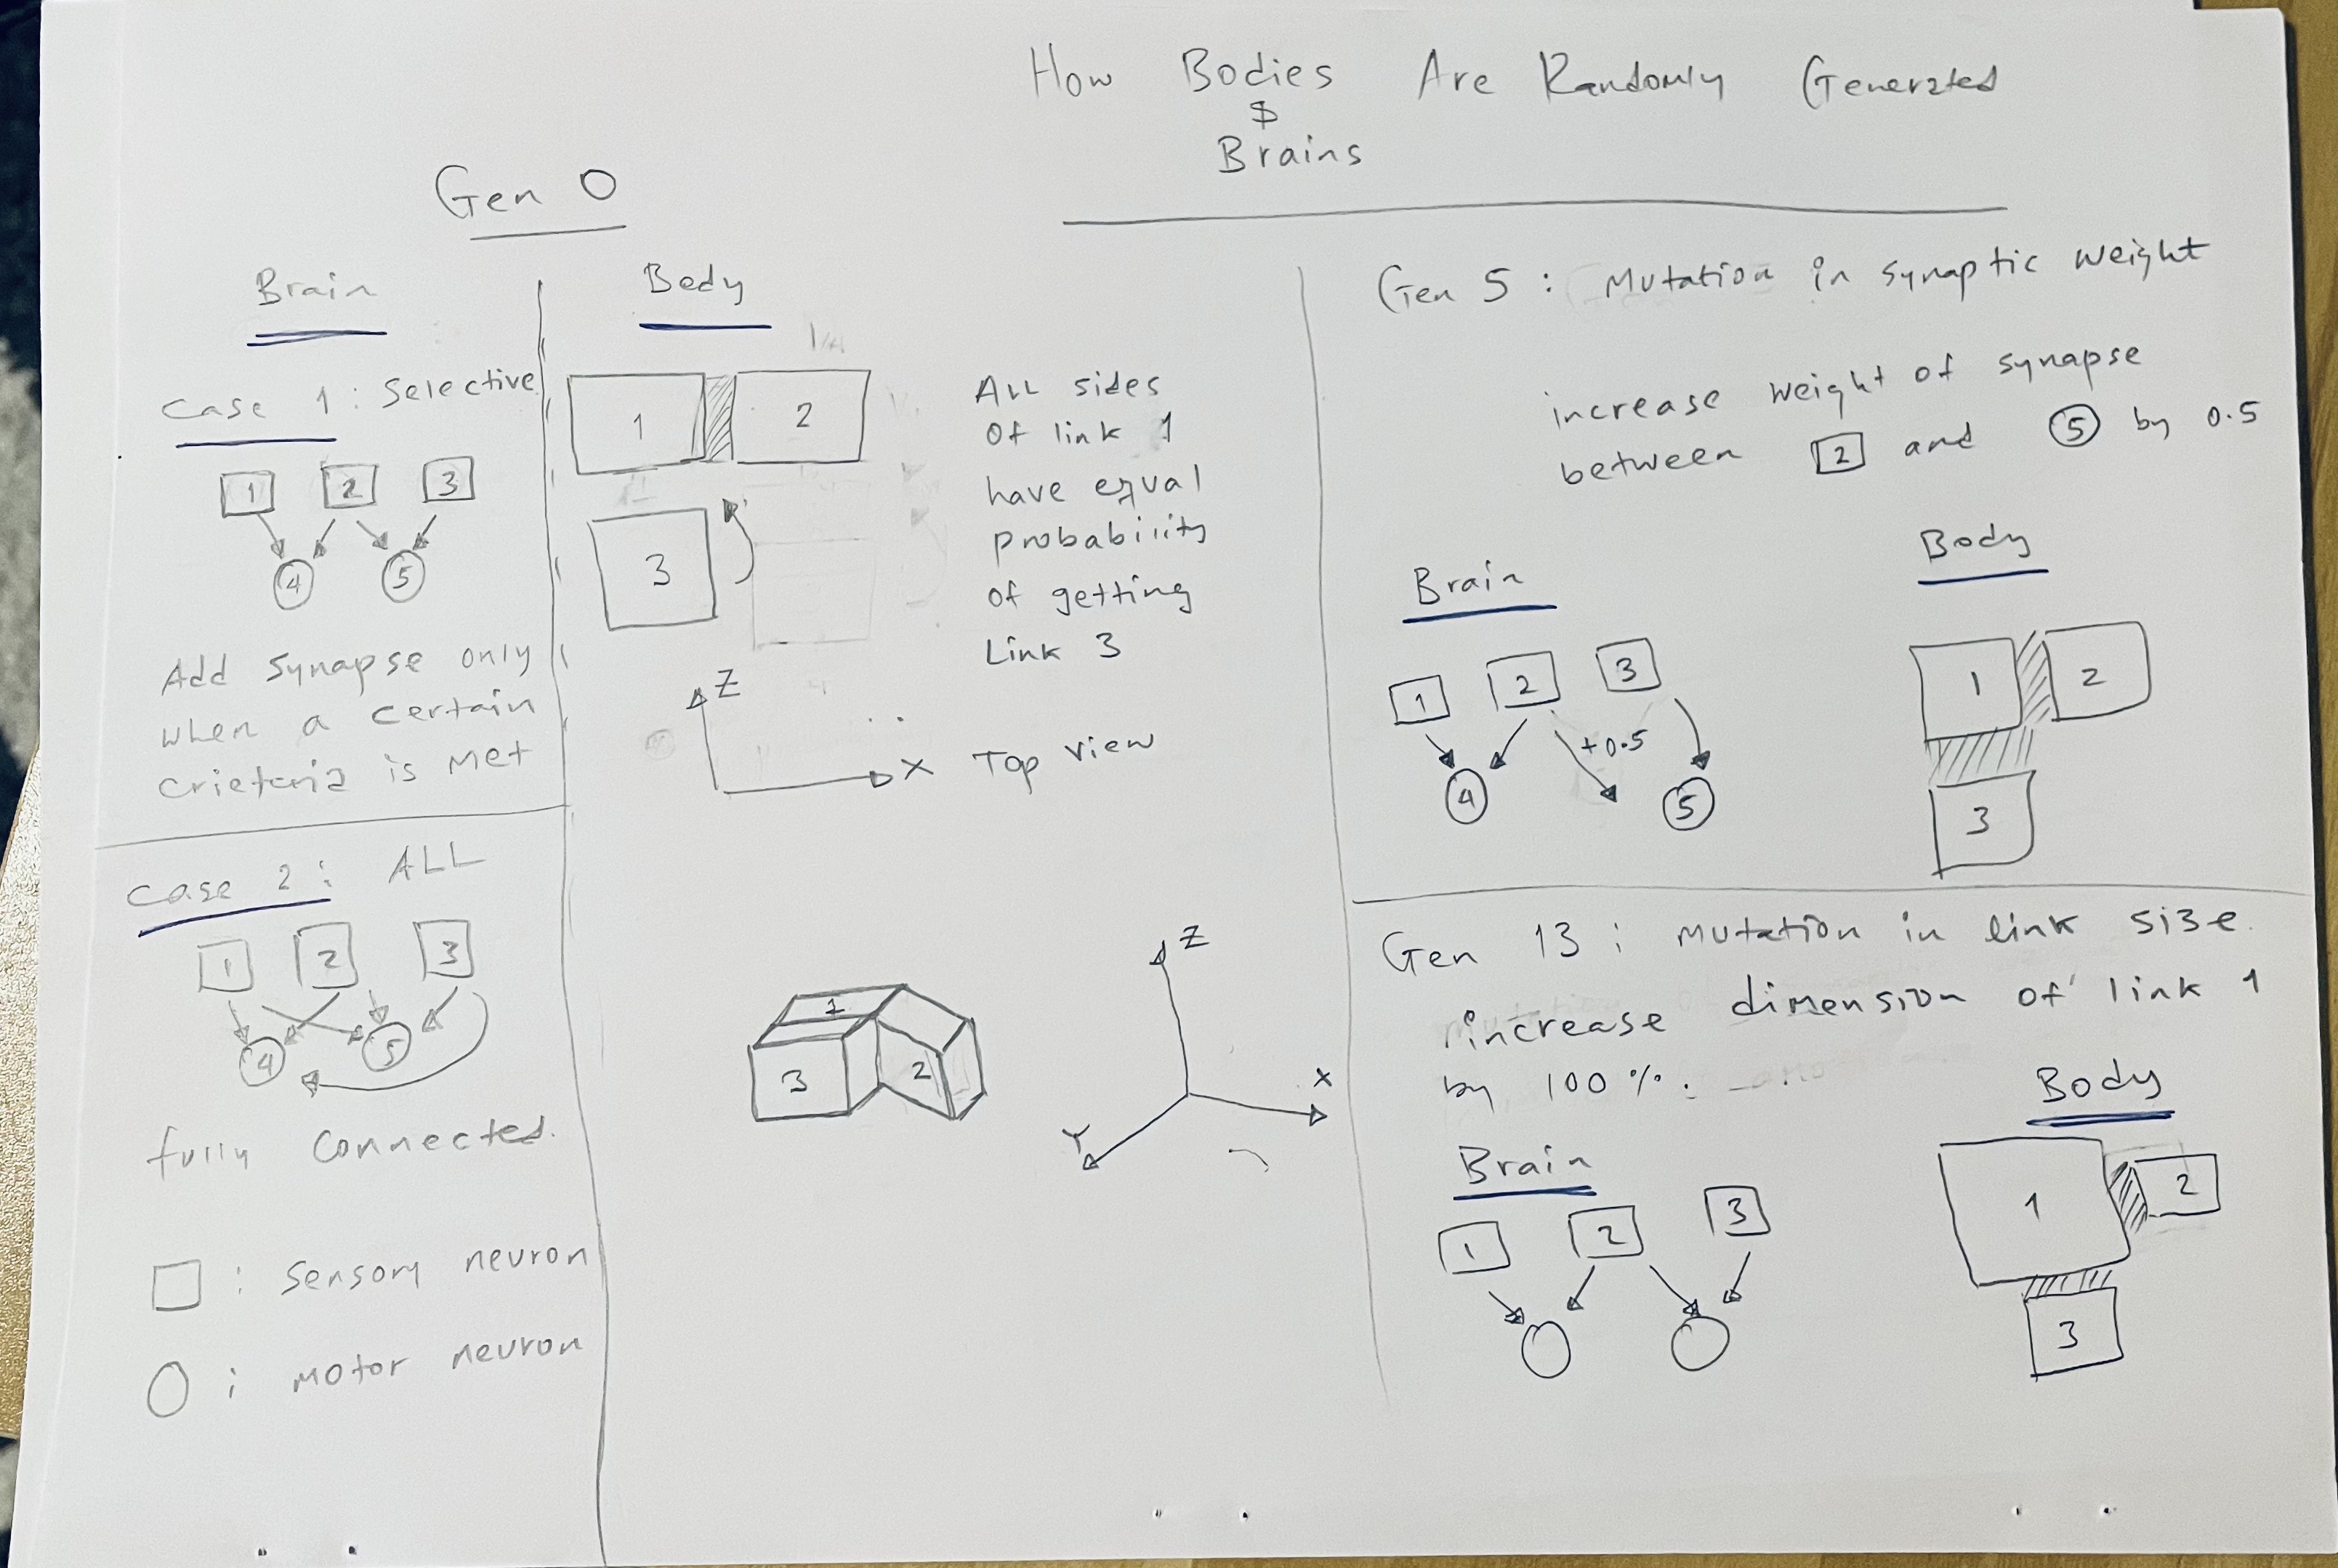 How Bodies Are Randomly Generated
$
Brains
Gen 0
Brain
Case 1: Selective
1 2 3
4 5
Add synapse only
when a certain
crieteria is met
Case 2: ALL
1 2 3
4 5
fully connected.
: sensory neuron
: motor neuron
Body
1 2
3
ALL sides
of link 1
have equal
probability
of getting
Link 3
Z
X Top view
1
3 2
Z
X
Y
Gen 5: Mutation in synaptic weight
increase weight of synapse
between 2 and 5 by 0.5
Brain
1 2 3
+0.5
4 5
Body
1 2
3
Gen 13: Mutation in link size.
increase dimension of link 1
by 100%.
Brain
1 2 3
Body
1 2
3